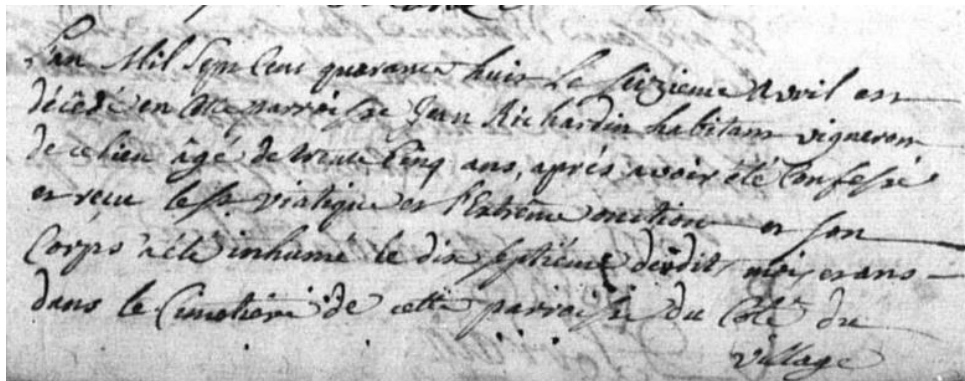 L'an Mil Sept Cent quarante huit Le seizieme Avril est
décédé en cette parroisse Jean Richardin habitant vigneron
de ce lieu âgé de trente Cinq ans, aprés avoir été Confessé
et recu le st viatique et l'Extrême onction et son
Corps a été inhumé le dix septiéme dudit mois et ans
dans le Cimetiere de cette parroisse du Côté du
village